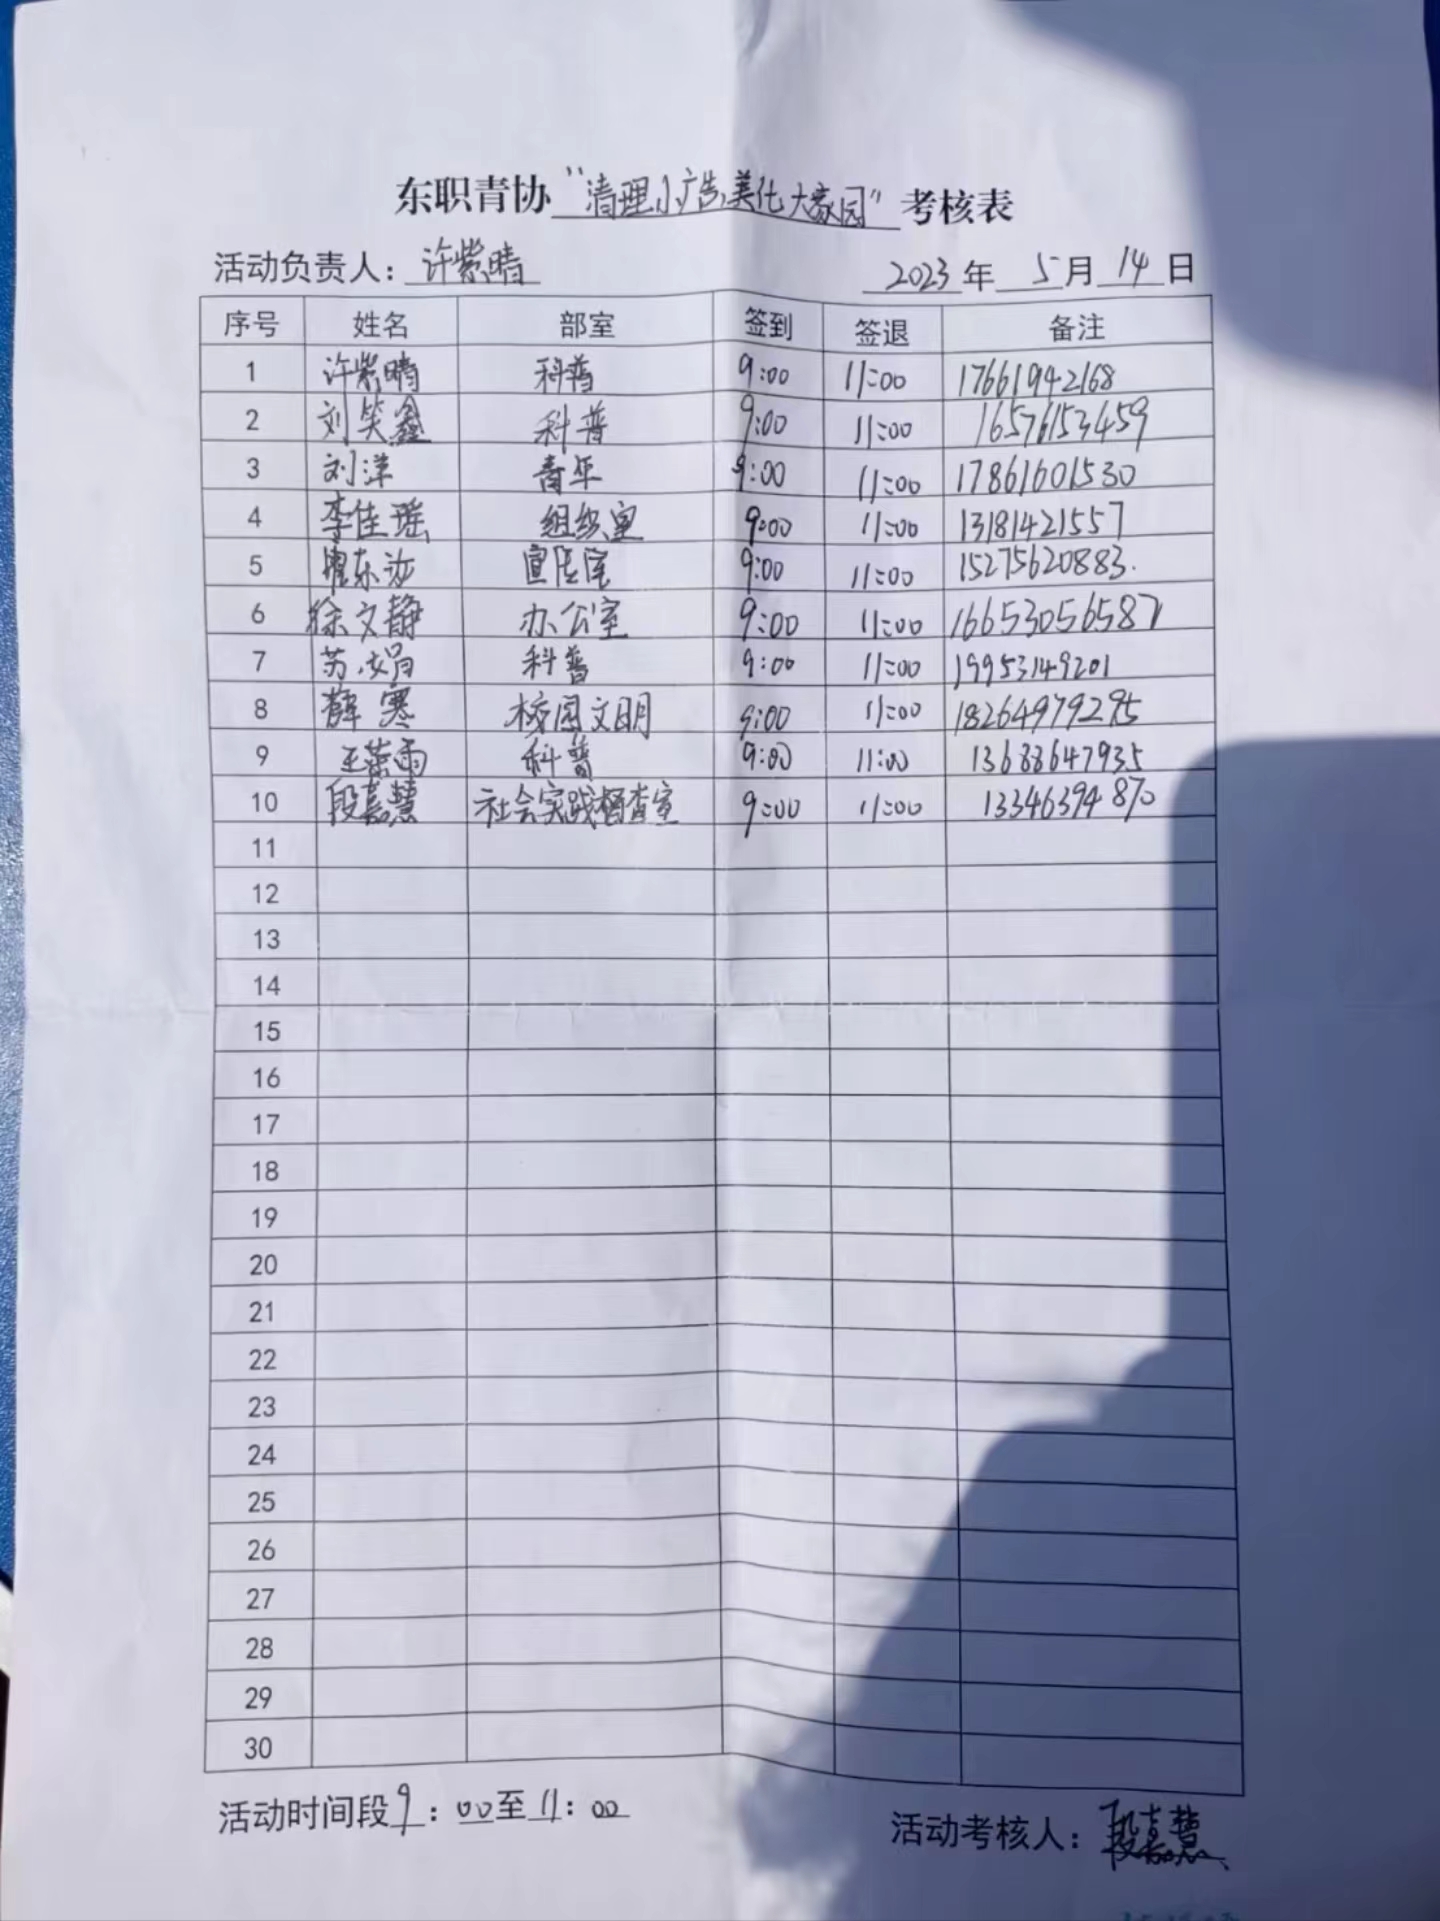 东职青协“清理小广告,美化大家园”考核表
活动负责人：许紫晴 2023年5月14日
序号 姓名 部室 签到 签退 备注
1 许紫晴 科普 9:00 11:00 17661942168
2 刘笑鑫 科普 9:00 11:00 16576153459
3 刘洋 青年 9:00 11:00 17861601530
4 李佳瑶 组织室 9:00 11:00 13181421557
5 东 宣传室 9:00 11:00 15275620883.
6 徐文静 办公室 9:00 11:00 16653056587
7 苏 科普 9:00 11:00 19953149201
8 薛寒 校园文明 9:00 11:00 18264979295
9 王荣雨 科普 9:00 11:00 13688647935
10 段嘉慧 社会实践督查室 9:00 11:00 13346394870
11
12
13
14
15
16
17
18
19
20
21
22
23
24
25
26
27
28
29
30
活动时间段9：00至11：00 活动考核人：段嘉慧